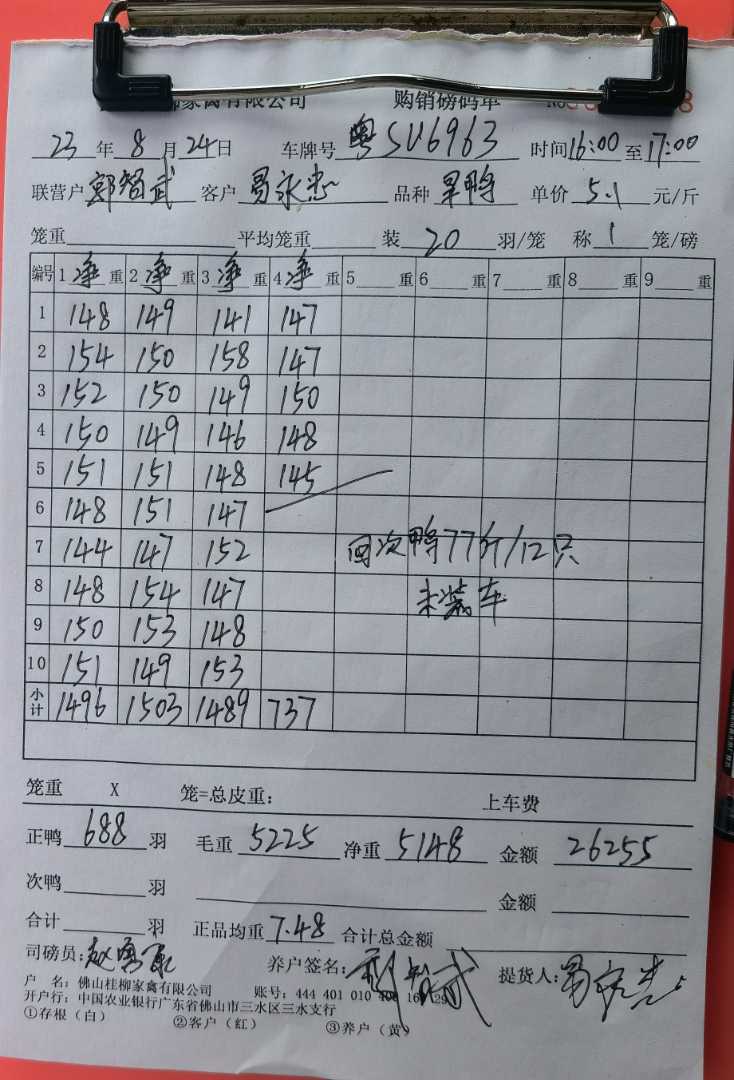 家禽有限公司 购销磅码单 No
23年8月24日 车牌号 粤SU6963 时间16:00至17:00
联营户 郭智武 客户 易永忠 品种 旱鸭 单价 5.1 元/斤
笼重 平均笼重 装 20 羽/笼 称 1 笼/磅
编号 1 净 重 2 净 重 3 净 重 4 净 重 5 重 6 重 7 重 8 重 9 重
1 148 149 141 147
2 154 150 158 147
3 152 150 149 150
4 150 149 146 148
5 151 151 148 145
6 148 151 147
7 144 147 152 回次鸭77斤/12只
8 148 154 147 未装车
9 150 153 148
10 151 149 153
小计 1496 1503 1489 737
笼重 X 笼=总皮重: 上车费
正鸭 688 羽 毛重 5225 净重 5148 金额 26255
次鸭 羽 金额
合计 羽 正品均重 7.48 合计总金额
司磅员: 养户签名: 郭智武 提货人: 易永忠
户 名: 佛山桂柳家禽有限公司 账号: 444 401 010 400
开户行: 中国农业银行广东省佛山市三水区三水支行
①存根(白) ②客户(红) ③养户(黄)